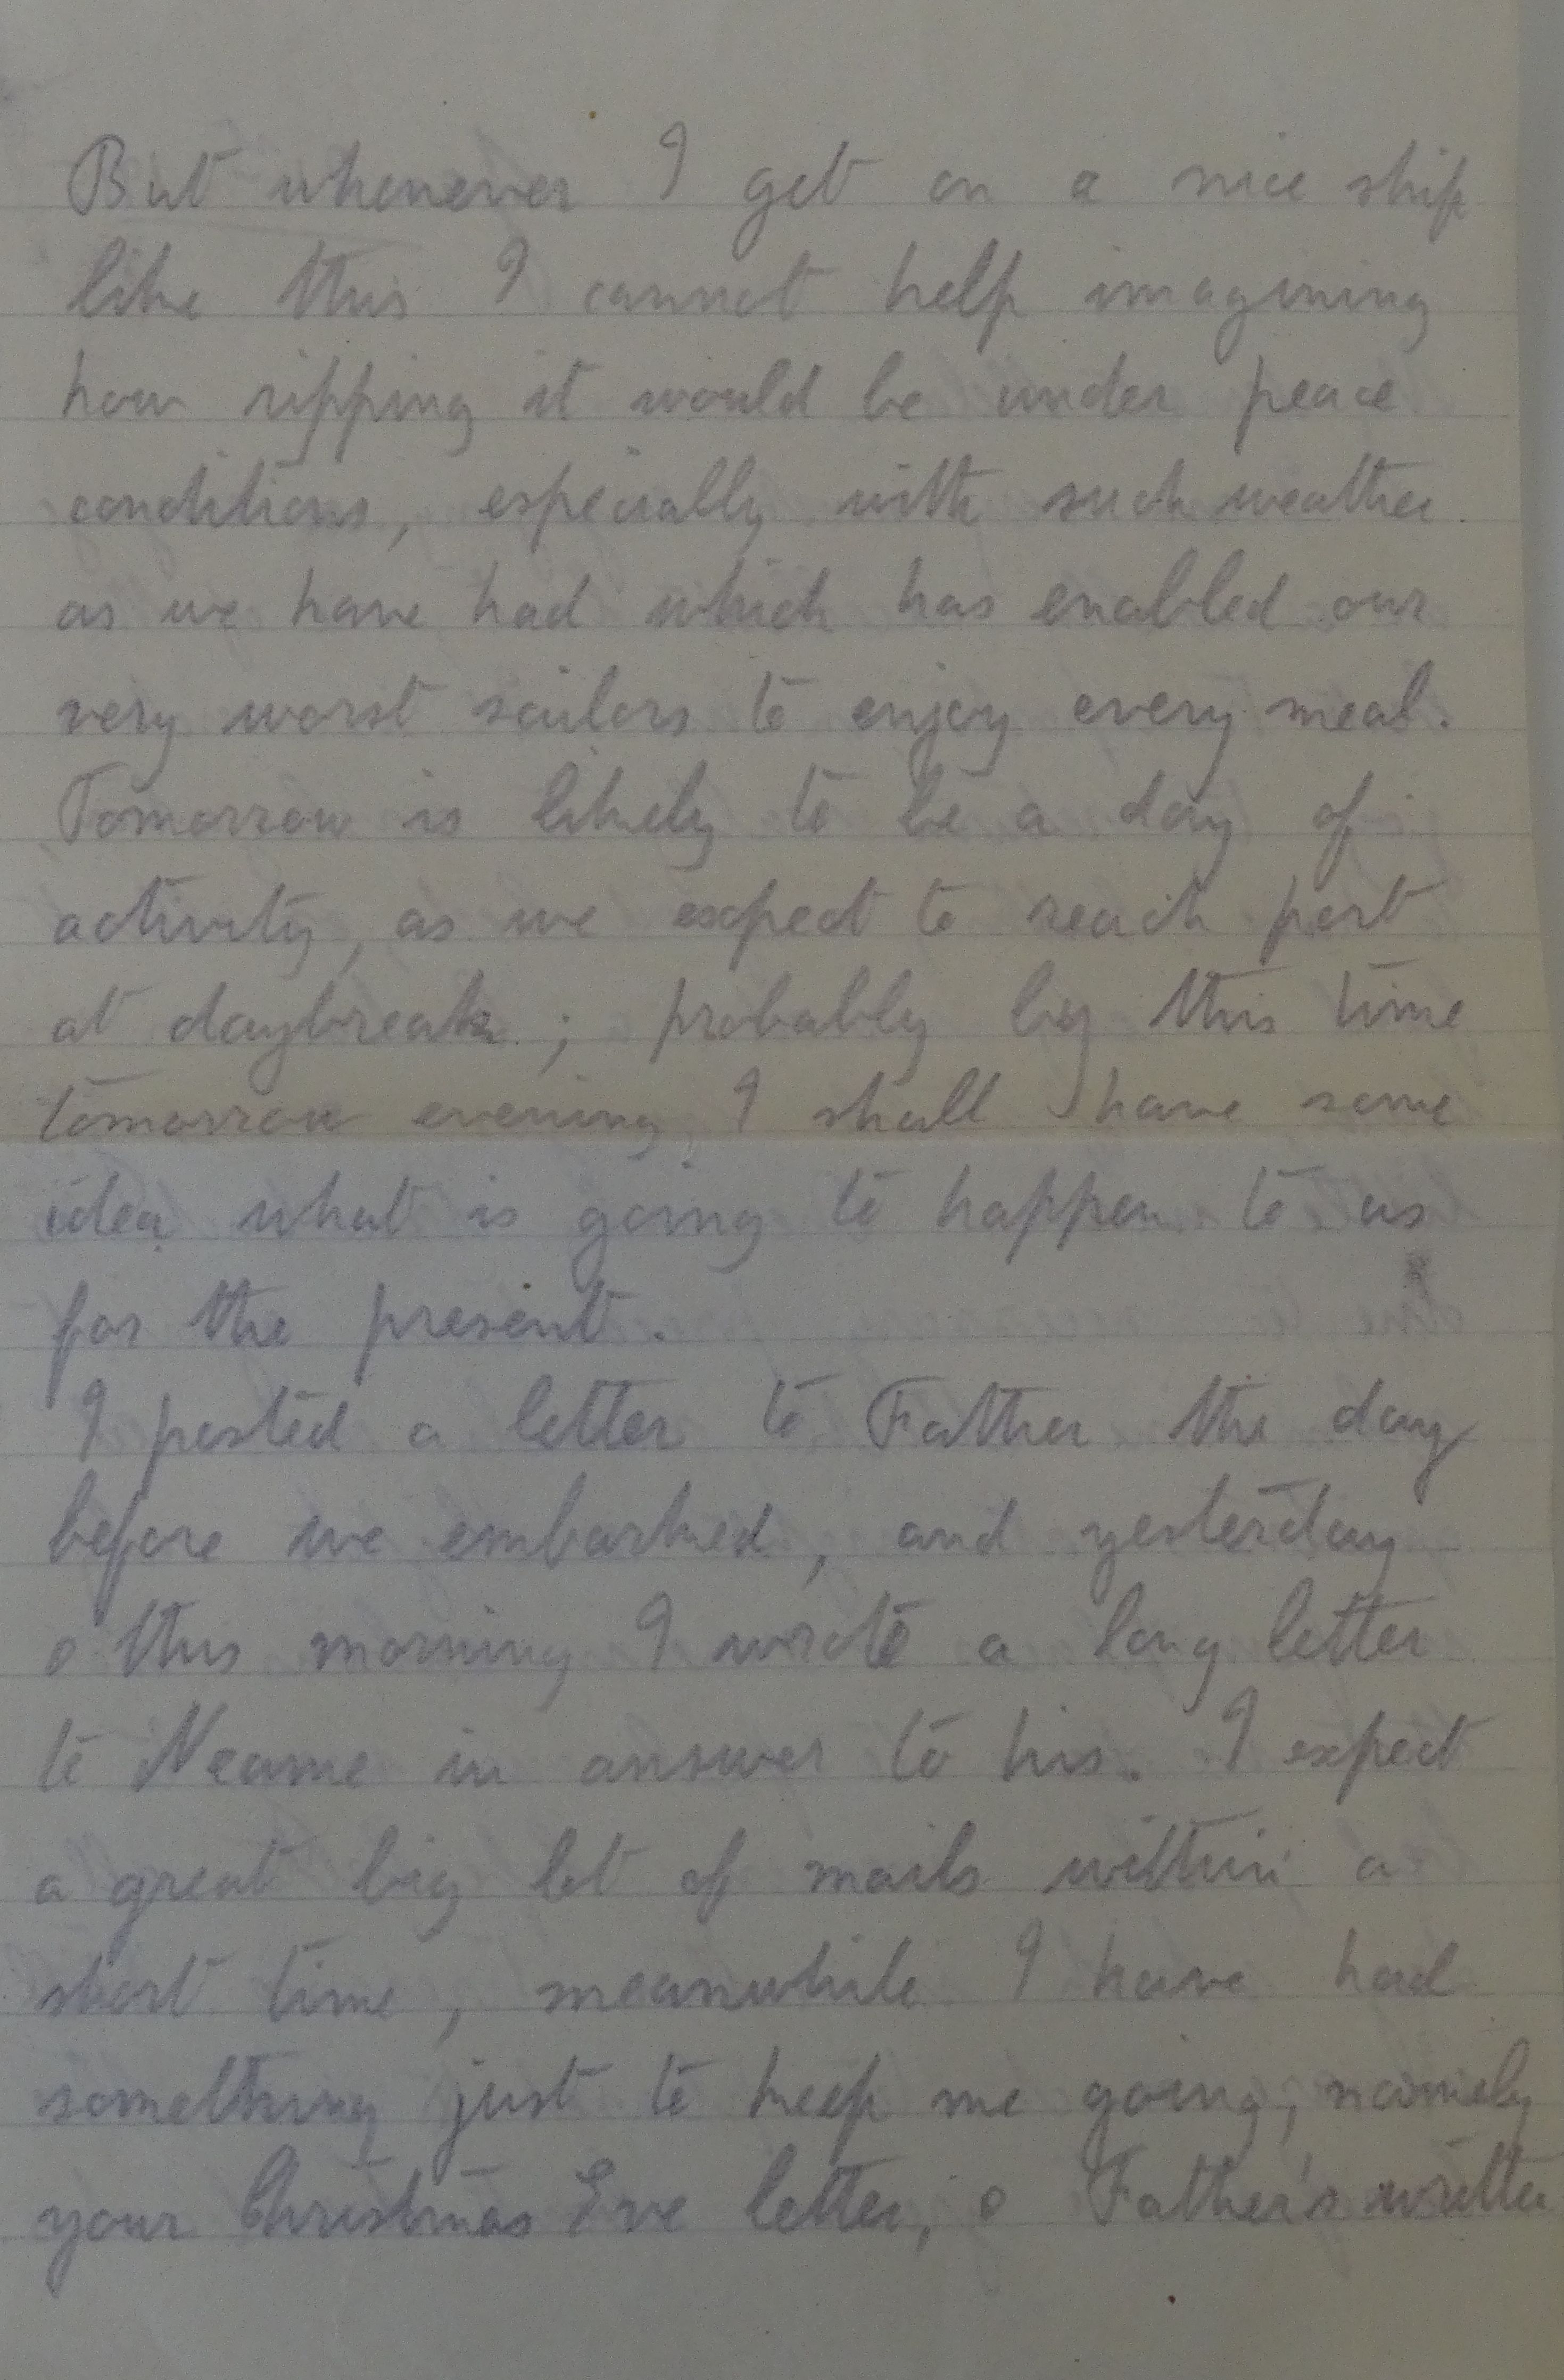 But whenever I get on a nice ship
like this I cannot help imagining
how ripping it would be under peace
conditions, especially with such weather
as we have had which has enabled our
very worst sailors to enjoy every meal.
Tomorrow is likely to be a day of
activity, as we expect to reach port
at daybreak; probably by this time
tomorrow evening, I shall have some
idea what is going to happen to us
for the present.
I posted a letter to Father the day
before we embarked, and yesterday
& this morning I wrote a long letter
to Neame in answer to his. I expect
a great big lot of mails within a
short time, meanwhile I have had
something just to keep me going, namely
your Christmas Eve letter, & Father's written